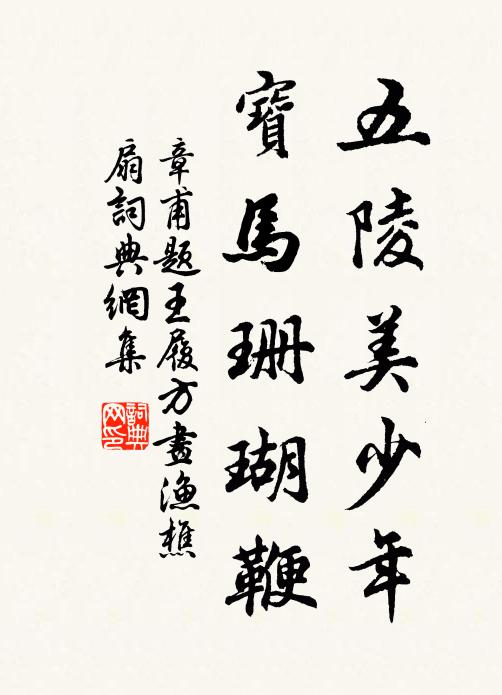 五陵美少年
寶馬珊瑚鞭
章甫題王履方畫漁樵
扇詞典網集
詞典网印